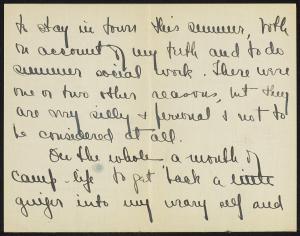 to stay in town this summer, both
on account of my teeth and to do
summer social work. There were
one or two other reasons, but they
are very silly & personal & not to
be considered at all.
On the whole a month of
camp-life to get back a little
ginger into my weary self and